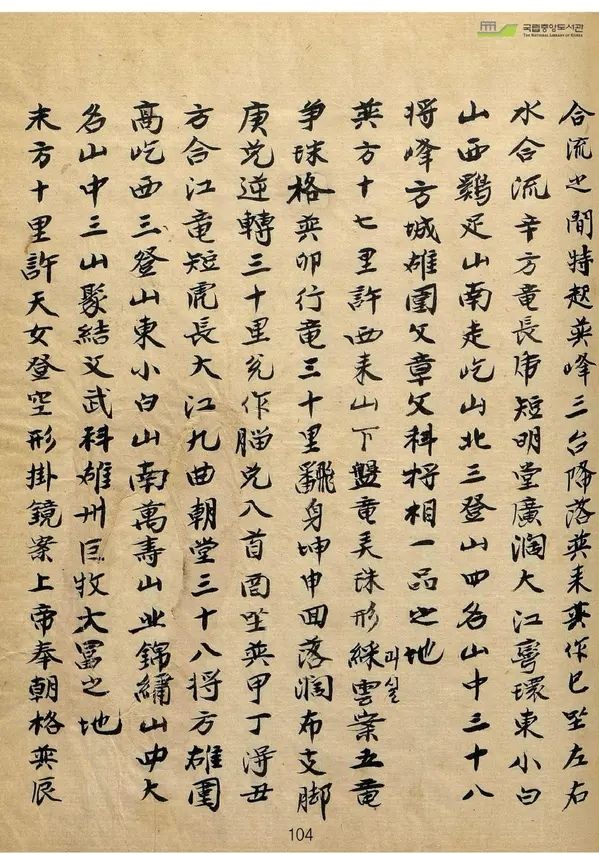 국립중앙도서관
THE NATIONAL LIBRARY OF KOREA
合流之間特起英峰三台降落英来英作巳坐左右
水合流辛方竜長虎短明堂廣濶大江弯環東小白
山西鷄足山南走屹山北三登山四名山中三十八
将峰方城雄圍文章文科将相一品之地
英方十七里許西来山下盤竜弄珠形綵雲案五竜
과실
争珠格英卯行竜三十里飜身坤申回落濶布支脚
庚兌逆轉三十里兌作腦兌八首酉坐英甲丁淂丑
方合江竜短虎長大江九曲朝堂三十八将方雄圍
高屹西三登山東小白山南萬壽山北錦繡山四大
名山中三山聚結文武科雄州巨牧大富之地
未方十里許天女登空形掛鏡案上帝奉朝格英辰
104